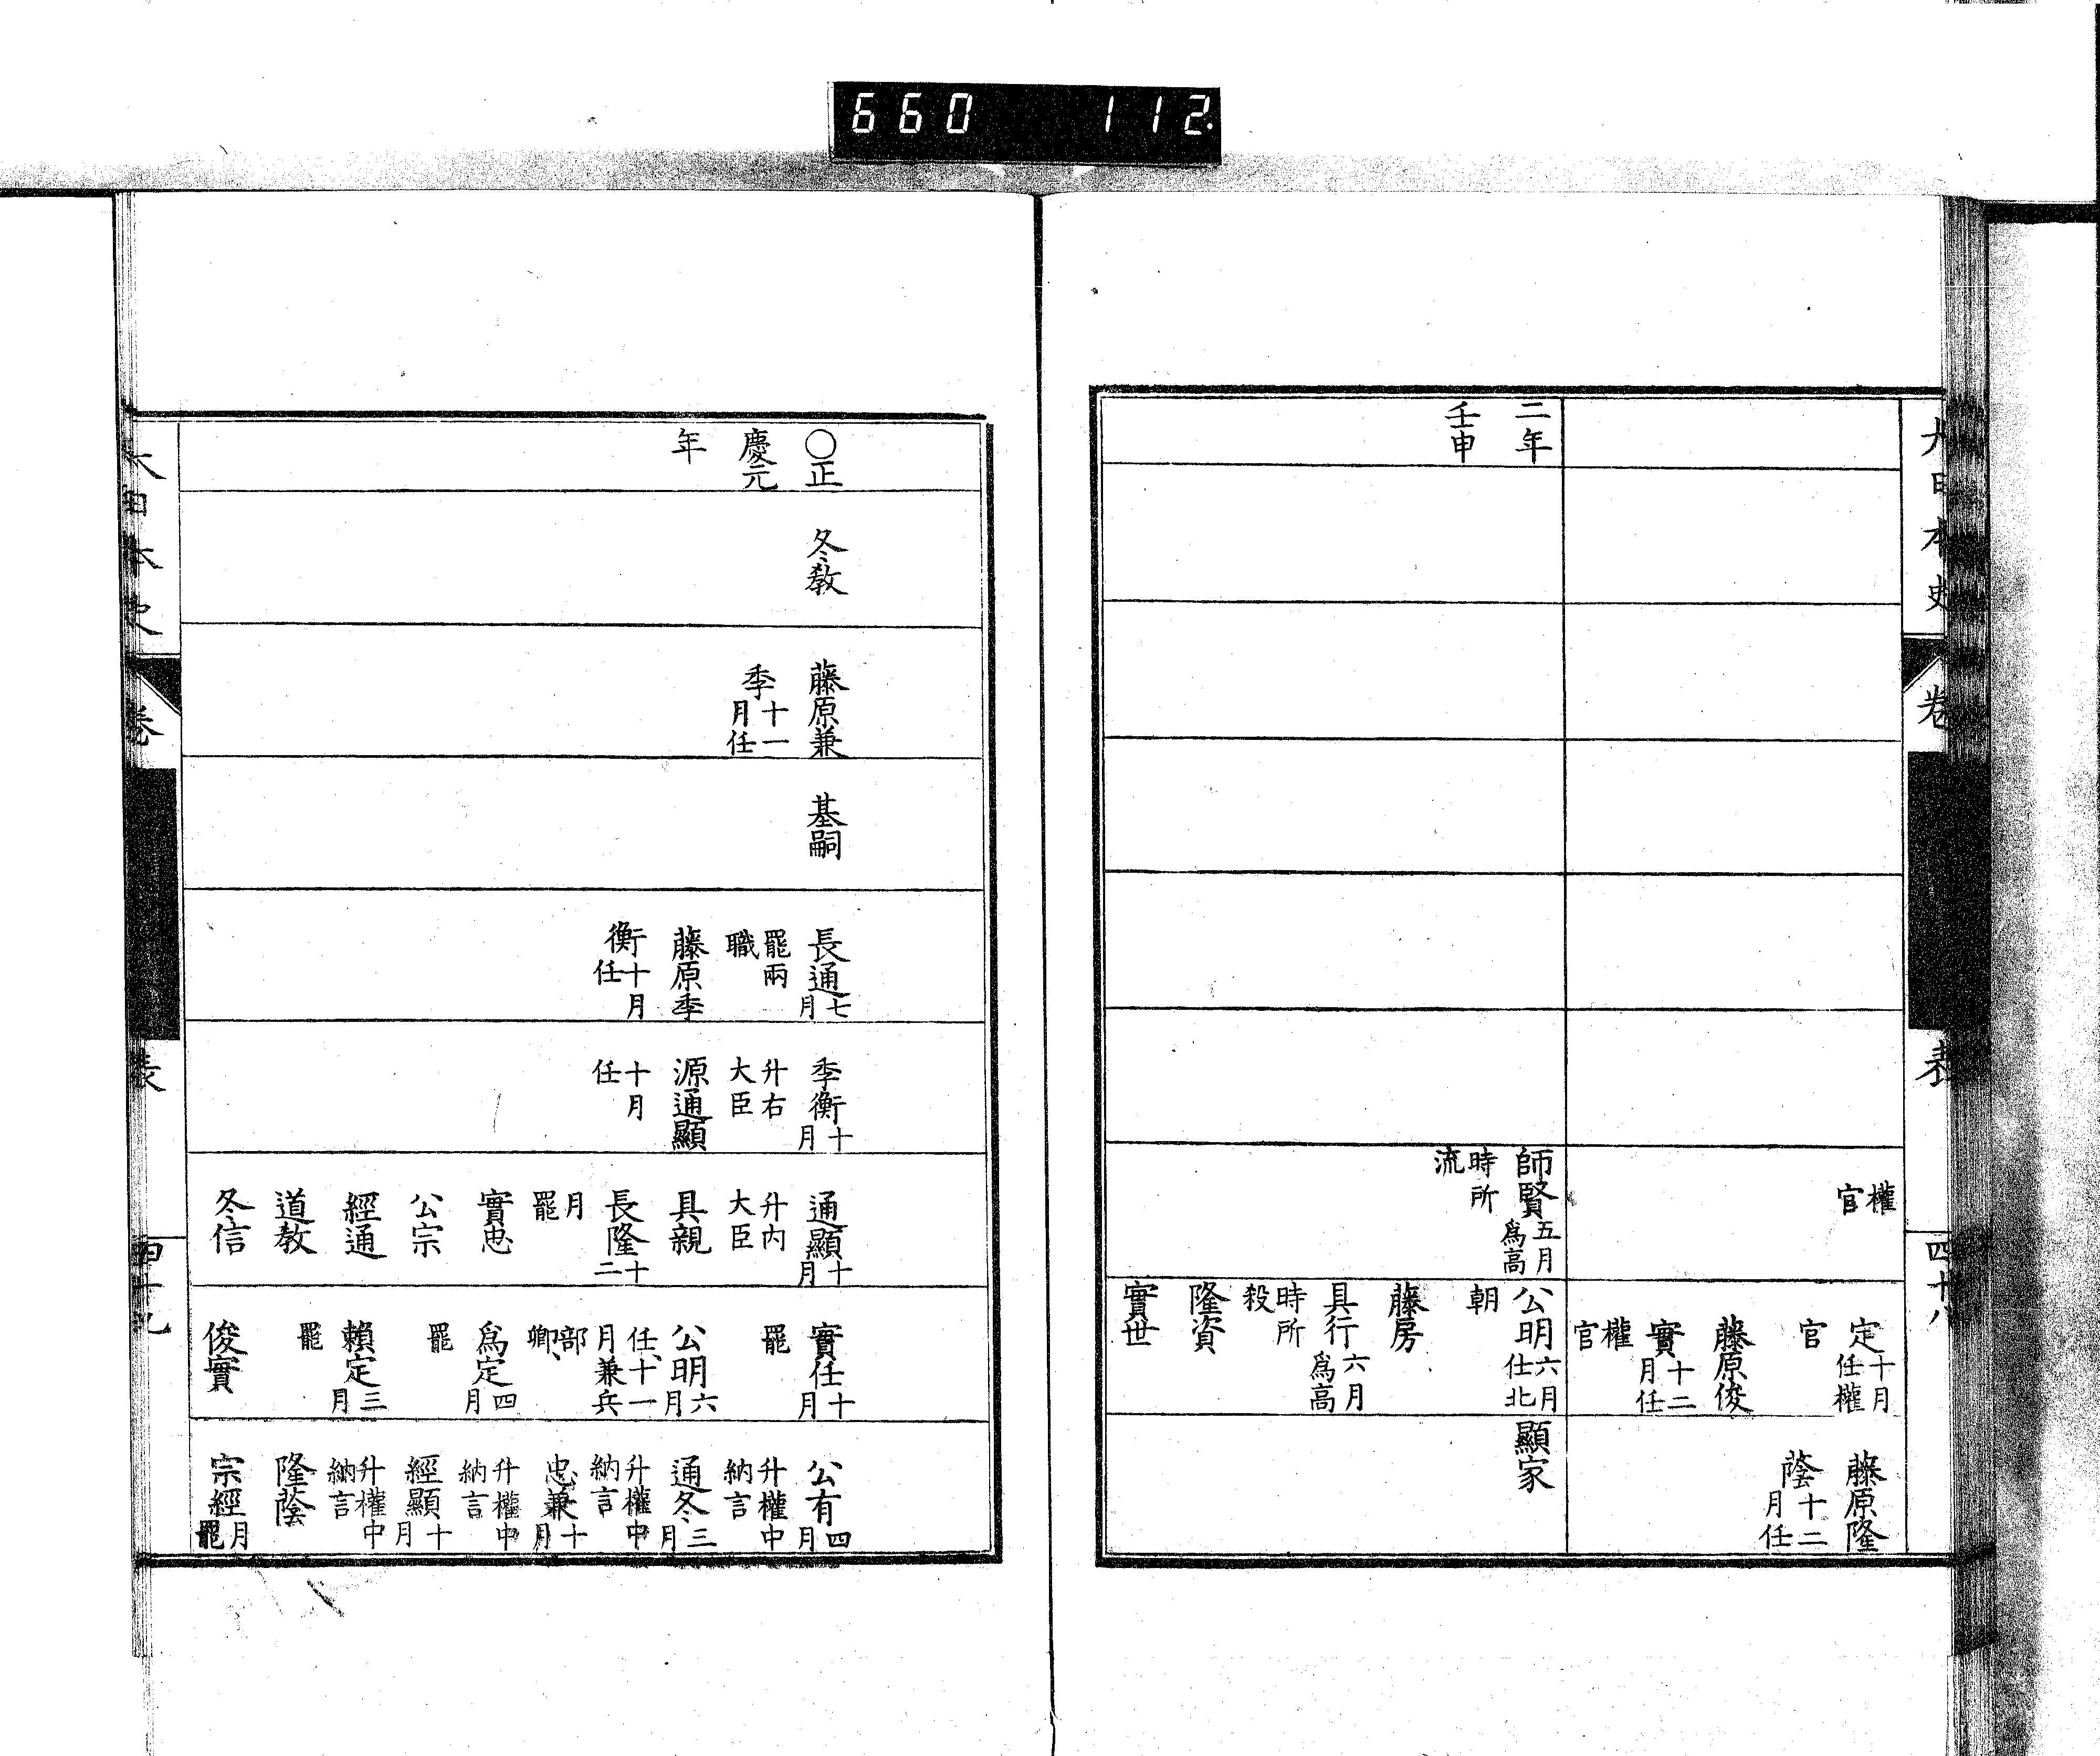 660 112
大日本史
卷
表
四十八
權官
定十月任權官
藤原俊
實十二月任
權官
藤原隆
蔭十二月任
二年
壬申
師賢五月爲高
時所流
公明六月仕北
朝
藤房
具行六月爲高
時所殺
隆資
實世
顯家
○正
慶元
年
冬教
藤原兼
季十一月任
基嗣
長通七月
罷兩職
藤原季
衡十月任
季衡十月
升右大臣
源通顯
十月任
通顯十月
升內大臣
具親
長隆十二
月罷
實忠
公宗
經通
道教
冬信
實任十月
罷
公明六月
任、十一月兼兵
部卿、
爲定四月
罷
賴定三月
罷
俊實
公有四月
升權中納言
通冬三月
升權中納言
忠兼十月
升權中納言
經顯十月
升權中納言
隆蔭
宗經月罷
大日本史
卷
表
四十九